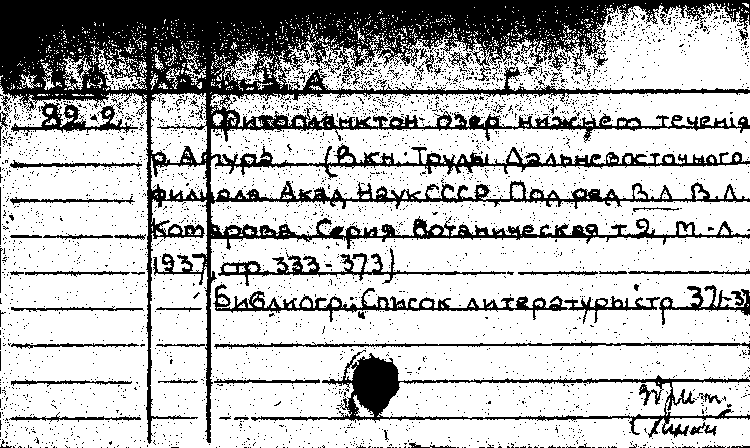 35-19 Ха А Г.
82-2 Фитопланктон озер нижнего теченія
р Амура. (В кн: Труды Дальневосточного
филиала Акад Наук СССР, Под ред В.Л В.Л.
Комарова. Серия Ботаническая т 2, М.-Л.
1937, стр. 333-373)
Библиогр.: Список литературы стр 371-37